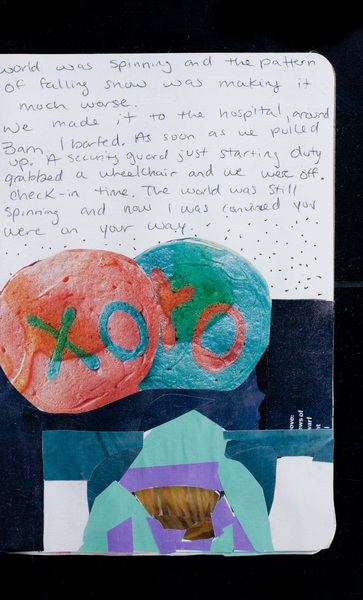 world was spinning and the pattern
of falling snow was making it
much worse.
We made it to the hospital, around
3am, I barfed. As soon as we pulled
up. A security guard just starting duty
grabbed a wheelchair and we were off.
Check-in time. The world was still
Spinning and now I was convinced you
were on your way.
XO XO
ove:
ows of
warf